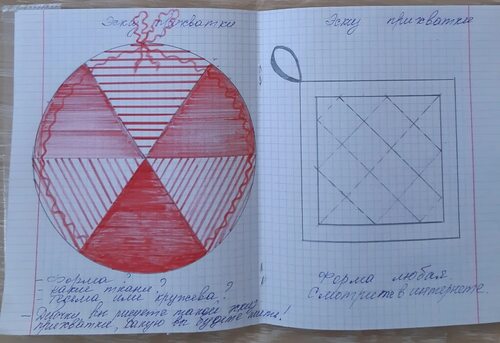 Эскиз прихватки
- Форма?
- какие ткани?
- Тесьма или кружева?
- Девочки, вы рисуете такой эскиз
прихватки, какую вы будете шить!
Эскиз прихватки
Форма любая.
Смотрите в интернете.